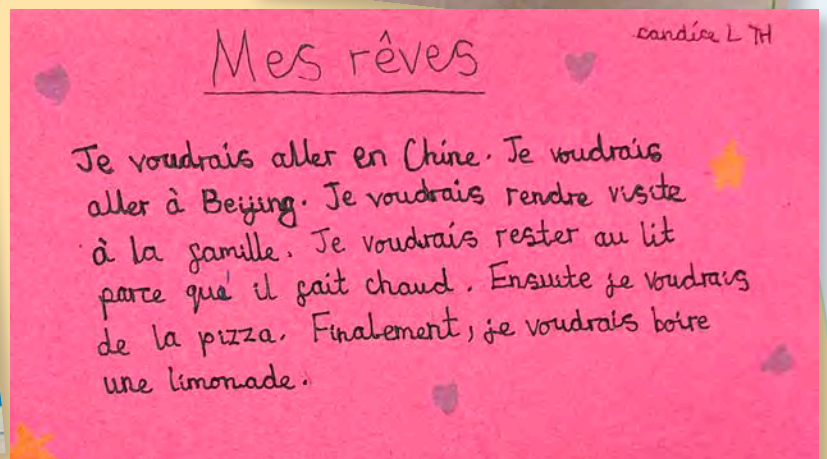 candice L 7H
Mes rêves
Je voudrais aller en Chine. Je voudrais
aller à Beijing. Je voudrais rendre visite
à la famille. Je voudrais rester au lit
parce que il fait chaud. Ensuite je voudrais
de la pizza. Finalement, je voudrais boire
une limonade.